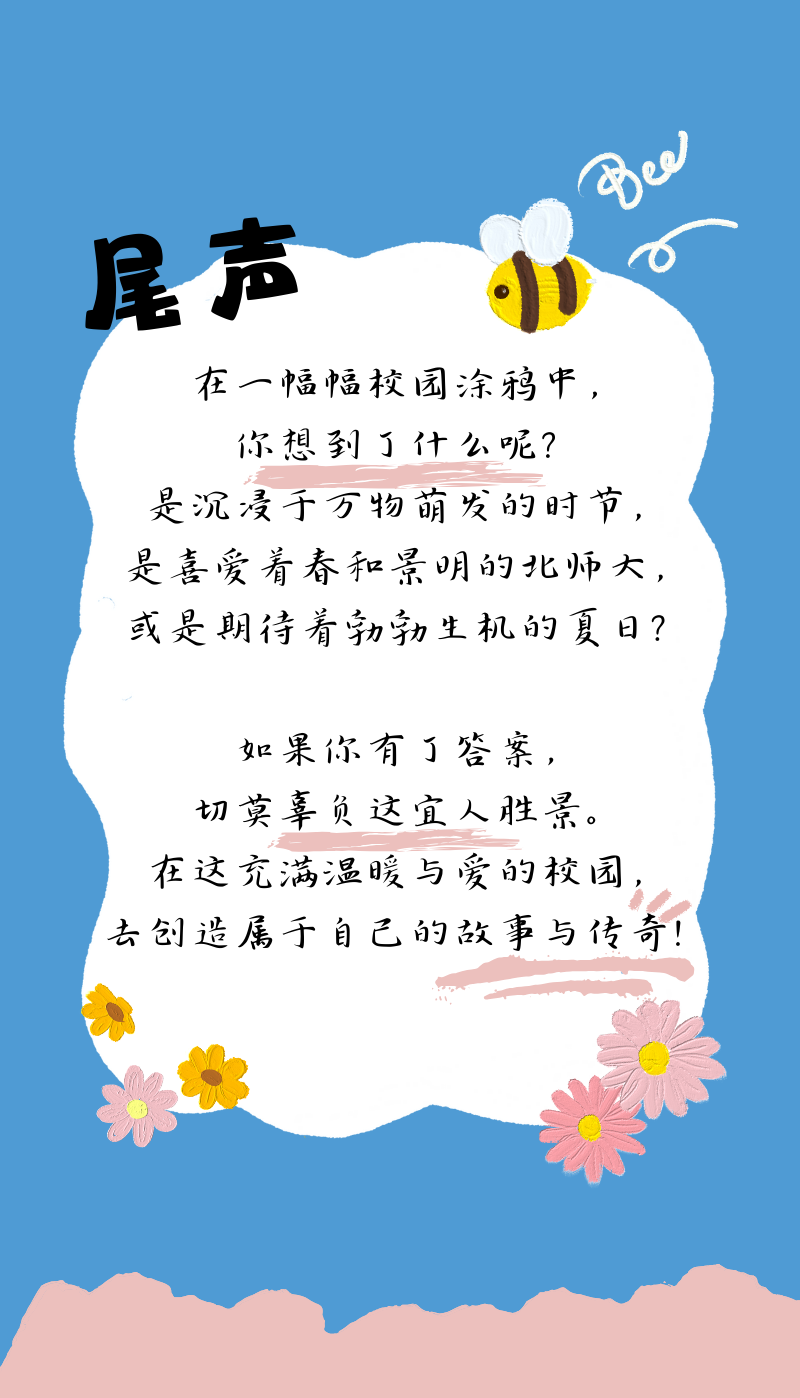 Bee
尾声
在一幅幅校园涂鸦中，
你想到了什么呢？
是沉浸于万物萌发的时节，
是喜爱着春和景明的北师大，
或是期待着勃勃生机的夏日？
如果你有了答案，
切莫辜负这宜人胜景。
在这充满温暖与爱的校园，
去创造属于自己的故事与传奇！